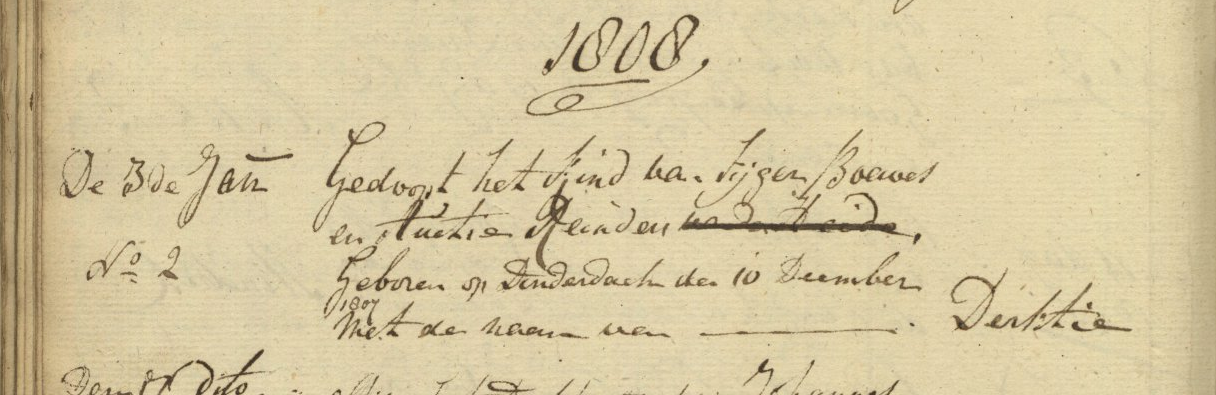 1808.
De 3de Jan Gedoopt het Kind van Sijger Boewes
en Auctie Reinders van der Heide.
No 2 Geboren op Donderdach den 10 December
1807
Met de naam van —— . Derktie
Dito Johannes